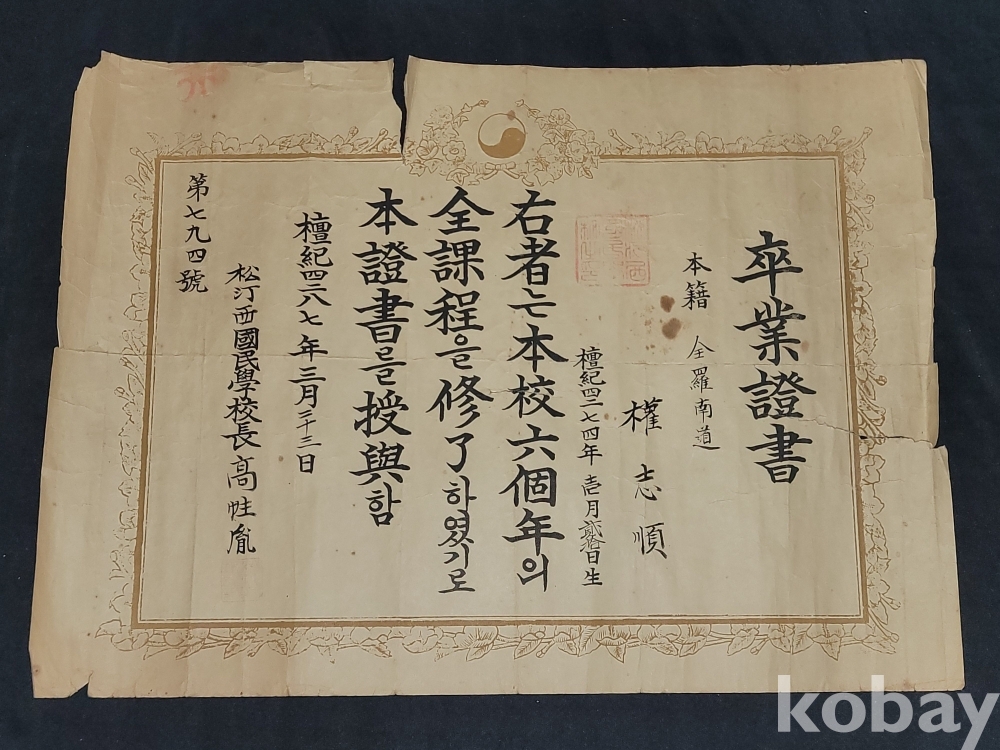 卒業證書
本籍 全羅南道
權志順
檀紀四二七四年 壱月 貳拾日生
右者는本校六個年의
全課程을修了하였기로
本證書를授與함
檀紀四二八七年三月二十三日
松汀西國民學校長 高
第七九四號
kobay